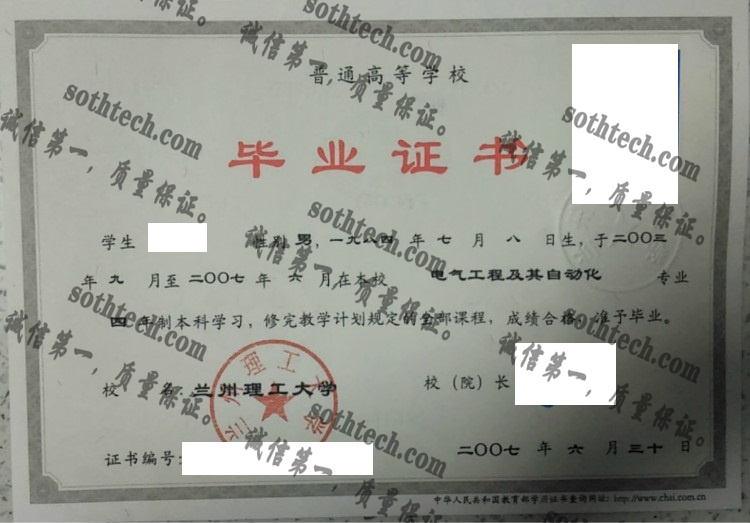 普通高等学校
毕业证书
学生 性别 男，一九八四 年 七 月 八 日生，于二〇〇三
年 九 月至 二〇〇七 年 六 月在本校 电气工程及其自动化 专业
四 年制本科学习，修完教学计划规定的全部课程，成绩合格，准予毕业。
校 名 兰州理工大学 校（院）长
兰州理工大学
证书编号： 二〇〇七 年 六 月 三十 日
中华人民共和国教育部学历证书查询网址：http://www.chsi.com.cn
sothtech.com
诚信第一，质量保证。
sothtech.com
诚信第一，质量保证。
sothtech.com
诚信第一，质量保证。
sothtech.com
诚信第一，质量保证。
sothtech.com
诚信第一，质量保证。
sothtech.com
诚信第一，质量保证。
sothtech.com
诚信第一，质量保证。